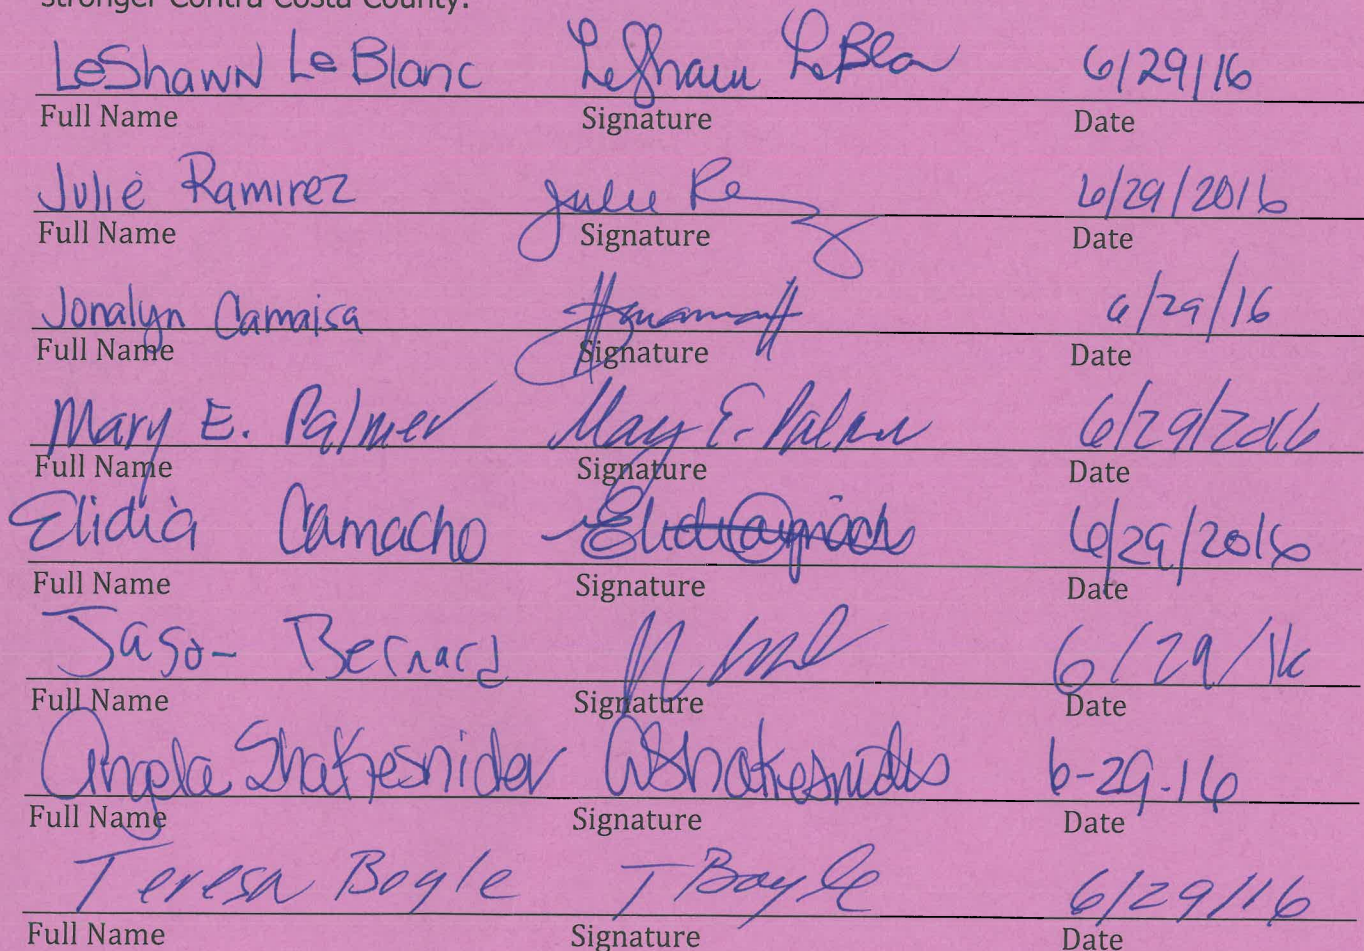 stronger Contra Costa County.
LeShawn LeBlanc LeShawn LeBla 6/29/16
Full Name Signature Date
Julie Ramirez Julie 6/29/2016
Full Name Signature Date
Jonalyn Camaisa 6/29/16
Full Name Signature Date
Mary E. Palmer Mary E. Palmer 6/29/2016
Full Name Signature Date
Elidia Camacho 6/29/2016
Full Name Signature Date
Jason Bernard 6/29/16
Full Name Signature Date
Angela Shakesnider AShakesnider 6-29-16
Full Name Signature Date
Teresa Boyle T Boyle 6/29/16
Full Name Signature Date